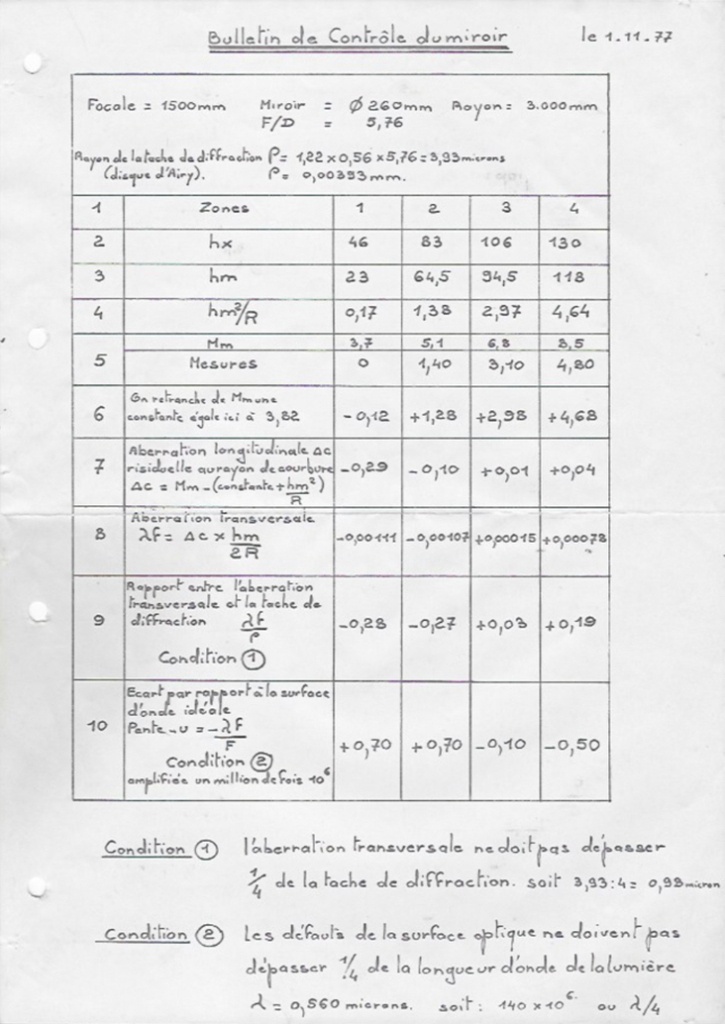 Bulletin de Contrôle du miroir le 1.11.77
Focale = 1500mm Miroir = Ø 260mm Rayon = 3.000mm
F/D = 5,76
Rayon de la tache de diffraction ρ = 1,22 x 0,56 x 5,76 = 3,93 microns
(disque d'Airy). ρ = 0,00393 mm.
1 Zones 1 2 3 4
2 hx 46 83 106 130
3 hm 23 64,5 94,5 118
4 hm²/R 0,17 1,38 2,97 4,64
Mm 3,7 5,1 6,8 8,5
5 Mesures 0 1,40 3,10 4,80
On retranche de Mm une
6 constante égale ici à 3,82 -0,12 +1,28 +2,98 +4,68
Aberration longitudinale Δc
7 risiduelle au rayon de courbure -0,29 -0,10 +0,01 +0,04
Δc = Mm - (constante + hm²/R)
Aberration transversale
8 λF = Δc x hm/2R -0,00111 -0,00107 +0,00015 +0,00078
Rapport entre l'aberration
transversale et la tache de
9 diffraction λf/ρ -0,28 -0,27 +0,03 +0,19
Condition ①
Ecart par rapport à la surface
d'onde idéale
10 Pente -u = -λF/F +0,70 +0,70 -0,10 -0,50
Condition ②
amplifiée un million de fois 10⁶
Condition ① l'aberration transversale ne doit pas dépasser
1/4 de la tache de diffraction. soit 3,93:4 = 0,98 micron
Condition ② Les défauts de la surface optique ne doivent pas
dépasser 1/4 de la longueur d'onde de la lumière
λ = 0,560 microns. soit : 140 x 10⁶. ou λ/4